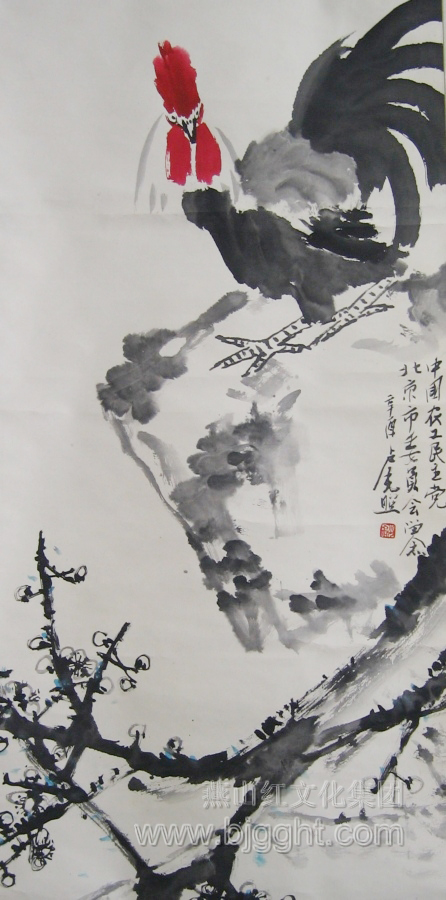 中国农工民主党
北京市委员会留念
辛酉 占魁照
燕山红文化集团
www.bjgght.com